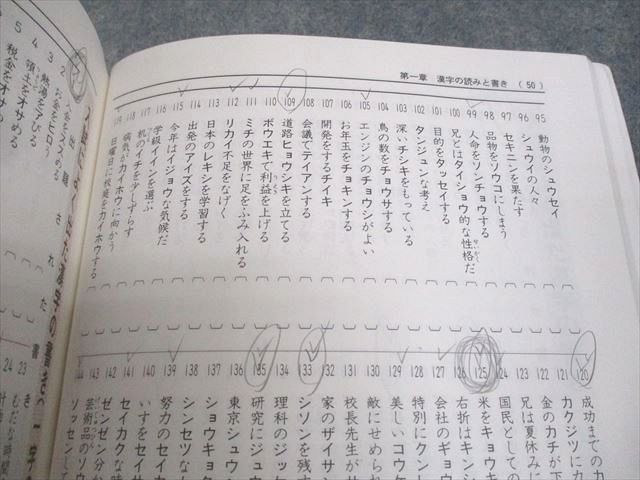 第一章 漢字の読みと書き (50)
95 動物のシュウセイ
96 シュウイの人々
97 セキニンを果たす
98 品物をソウコにしまう
99 人命をソンチョウする
100 兄とはタイショウ的な性格だ
101 目的をタッセイする
102 タンジュンな考え
103 深いチシキをもっている
104 鳥の数をチョウサする
105 エンジンのチョウシがよい
106 お年玉をチョキンする
107 開発をするチイキ
108 会議でテイアンする
109 道路ヒョウシキを立てる
110 ボウエキで利益を上げる
111 ミチの世界に足をふみ入れる
112 リカイ不足をなげく
113 日本のレキシを学習する
114 出発のアイズをする
115 今年はイジョウな気候だ
116 学級イインを選ぶ
117 机のイチを少しずらす
118 病気がカイホウに向かう
119 日曜日に校庭をカイホウする
120 成功までのカ
121 カクジツにカ
122 金のカチが下
123 兄は夏休みに
124 国民としての
125 米をキョウキ
126 右折はキンシ
127 会社のギョウ
128 特別にクン
129 美しいコウケ
130 敵にせめられ
131 校長先生がサ
132 家のザイサン
133 シソンを残す
134 理科のジッケ
135 研究にジュウ
136 東京シュウ
137 ショウキョ
138 シンセツな
139 努力のセイ
140 いすをセイ
141 セイカクな時
ゼンゼン分か
芸術品のソウ
144
出題された
2 お金をヒロう
3 熱湯をアびる
4 領土をオサめる
5 税金をオサめる
23
24